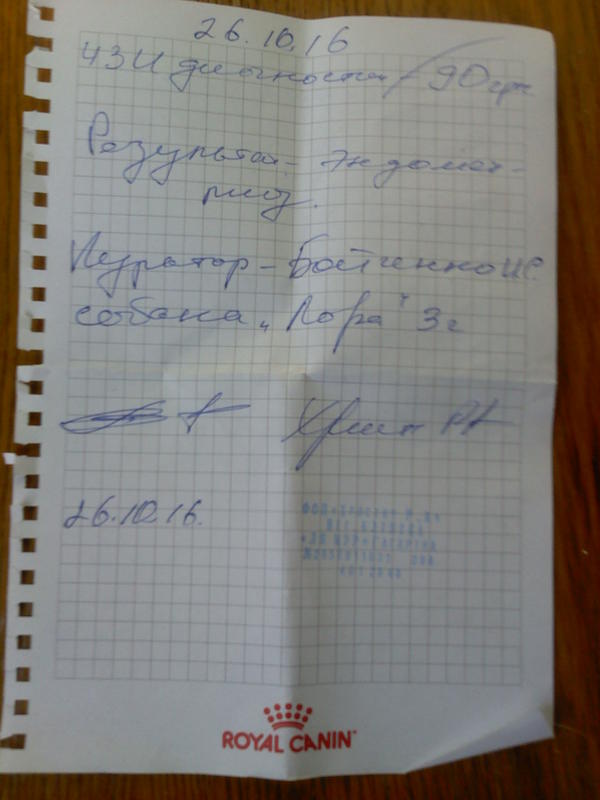 26.10.16
УЗИ диагностика / 90 грн
Результат - эндомет-
риоз.
Куратор - Бойченко И.С.
собака "Лора" 3г
26.10.16.
ROYAL CANIN